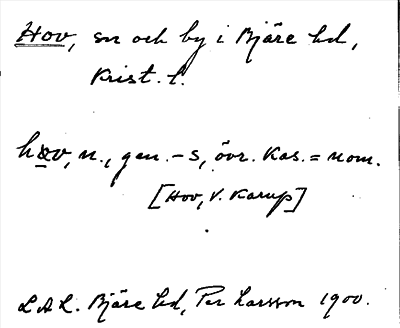 Hov, sn och by i Bjäre hd,
Krist. l.
hov, n., gen. -s, övr. kas. = nom.
[Hov, V. Karup]
LAL. Bjäre hd, Per Larsson 1900.